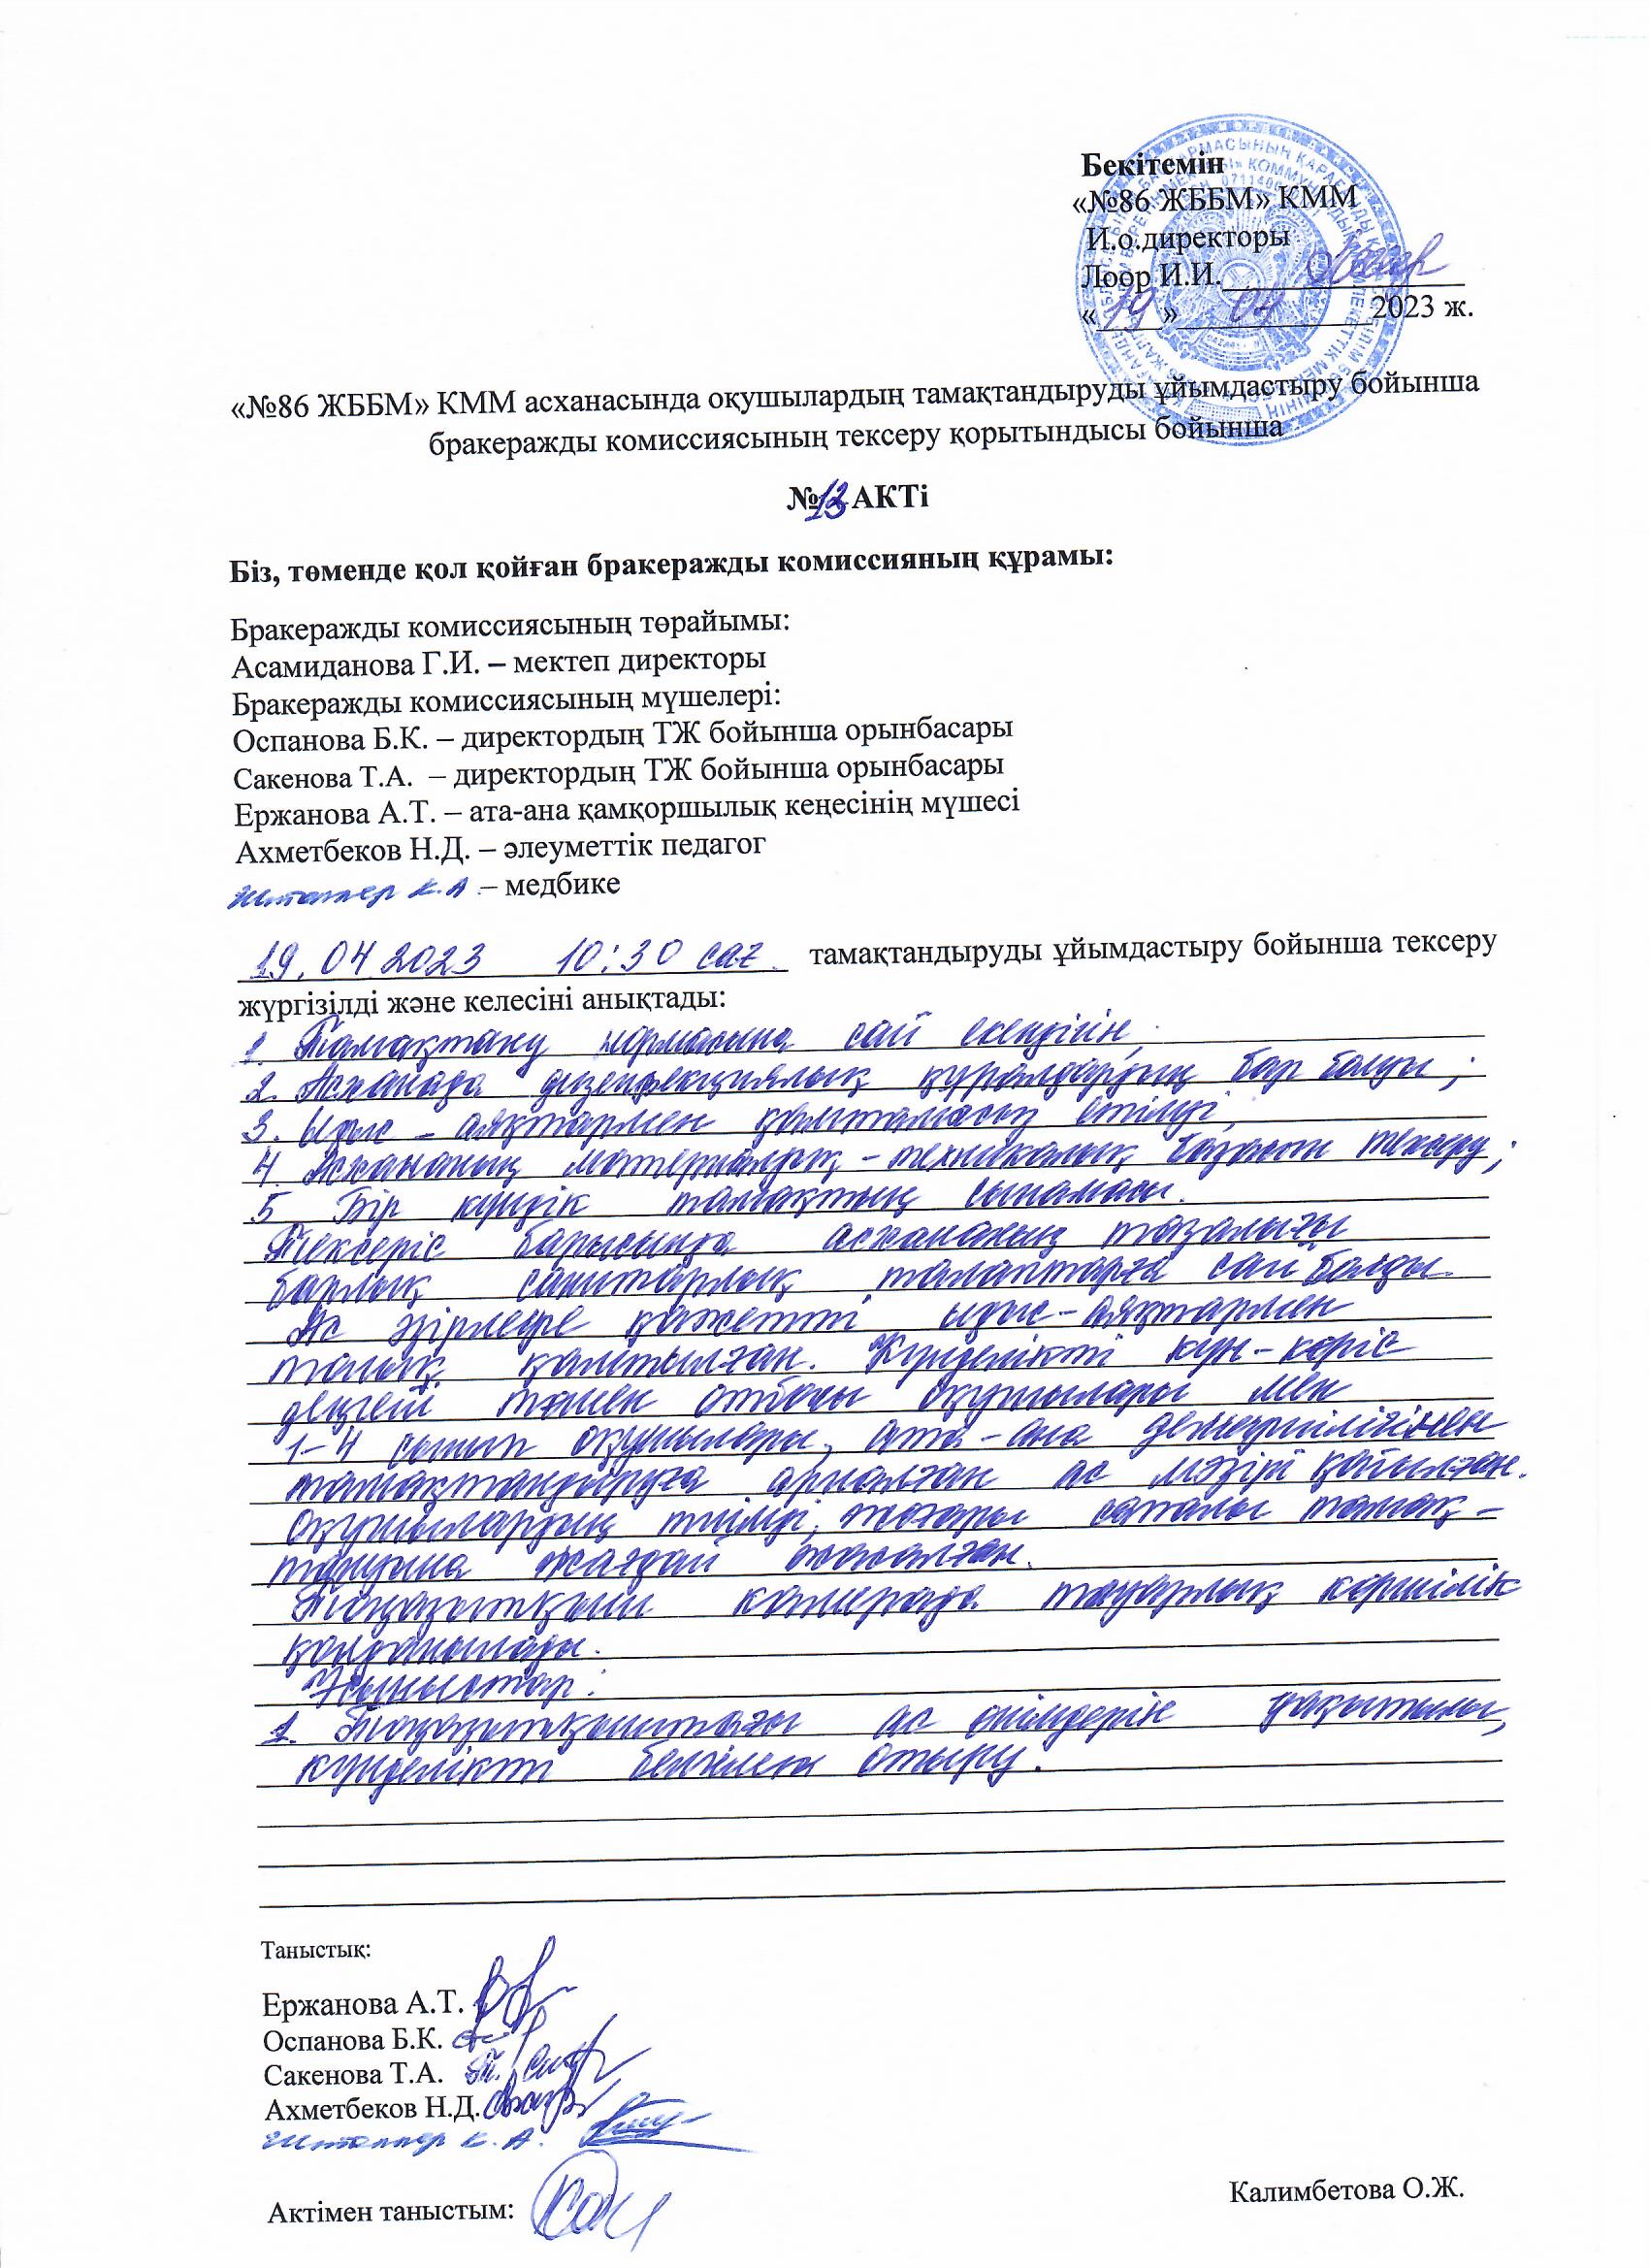 Бекітемін
«№86 ЖББМ» КММ
И.о.директоры
Лоор И.И.
«19» 04 2023 ж.
«№86 ЖББМ» КММ асханасында оқушылардың тамақтандыруды ұйымдастыру бойынша
бракеражды комиссиясының тексеру қорытындысы бойынша
№13 АКТі
Біз, төменде қол қойған бракеражды комиссияның құрамы:
Бракеражды комиссиясының төрайымы:
Асамиданова Г.И. – мектеп директоры
Бракеражды комиссиясының мүшелері:
Оспанова Б.К. – директордың ТЖ бойынша орынбасары
Сакенова Т.А. – директордың ТЖ бойынша орынбасары
Ержанова А.Т. – ата-ана қамқоршылық кеңесінің мүшесі
Ахметбеков Н.Д. – әлеуметтік педагог
К.А. – медбике
19.04 2023 10:30 сағ. тамақтандыруды ұйымдастыру бойынша тексеру
жүргізілді және келесіні анықтады:
1. Тамақтану нормасына сай екендігін,
2. Асханада дизенфекциялық құралдардың бар болуы;
3. Ыдыс - аяқтармен қамтамасыз етілуі,
4. Асхананың материалдық - техникалық базасын тексеру;
5 Бір күндік тамақтың сынамасы.
Тексеріс барысында асхананың тазалығы
барлық санитарлық талаптарға сай болды.
Ас әзірлеуге қажетті ыдыс-аяқтармен
толық қамтылған. Күнделікті күн-көріс
деңгейі төмен отбасы оқушылары мен
1-4 сынып оқушылары, ата-ана
тамақтандыруға арналған ас мәзірі қойылған.
Оқушылардың тиімді, жоғары сапалы тамақ-
тануына жағдай жасалған.
Тоңазытқыш камерада тауарлық көршілік
қолданылады.
Ұсыныстар:
1. Тоңазытқыштағы ас өнімдерін уақытылы,
күнделікті белгілеп отыру.
Таныстық:
Ержанова А.Т.
Оспанова Б.К.
Сакенова Т.А.
Ахметбеков Н.Д.
К. А.
Актімен таныстым: Калимбетова О.Ж.